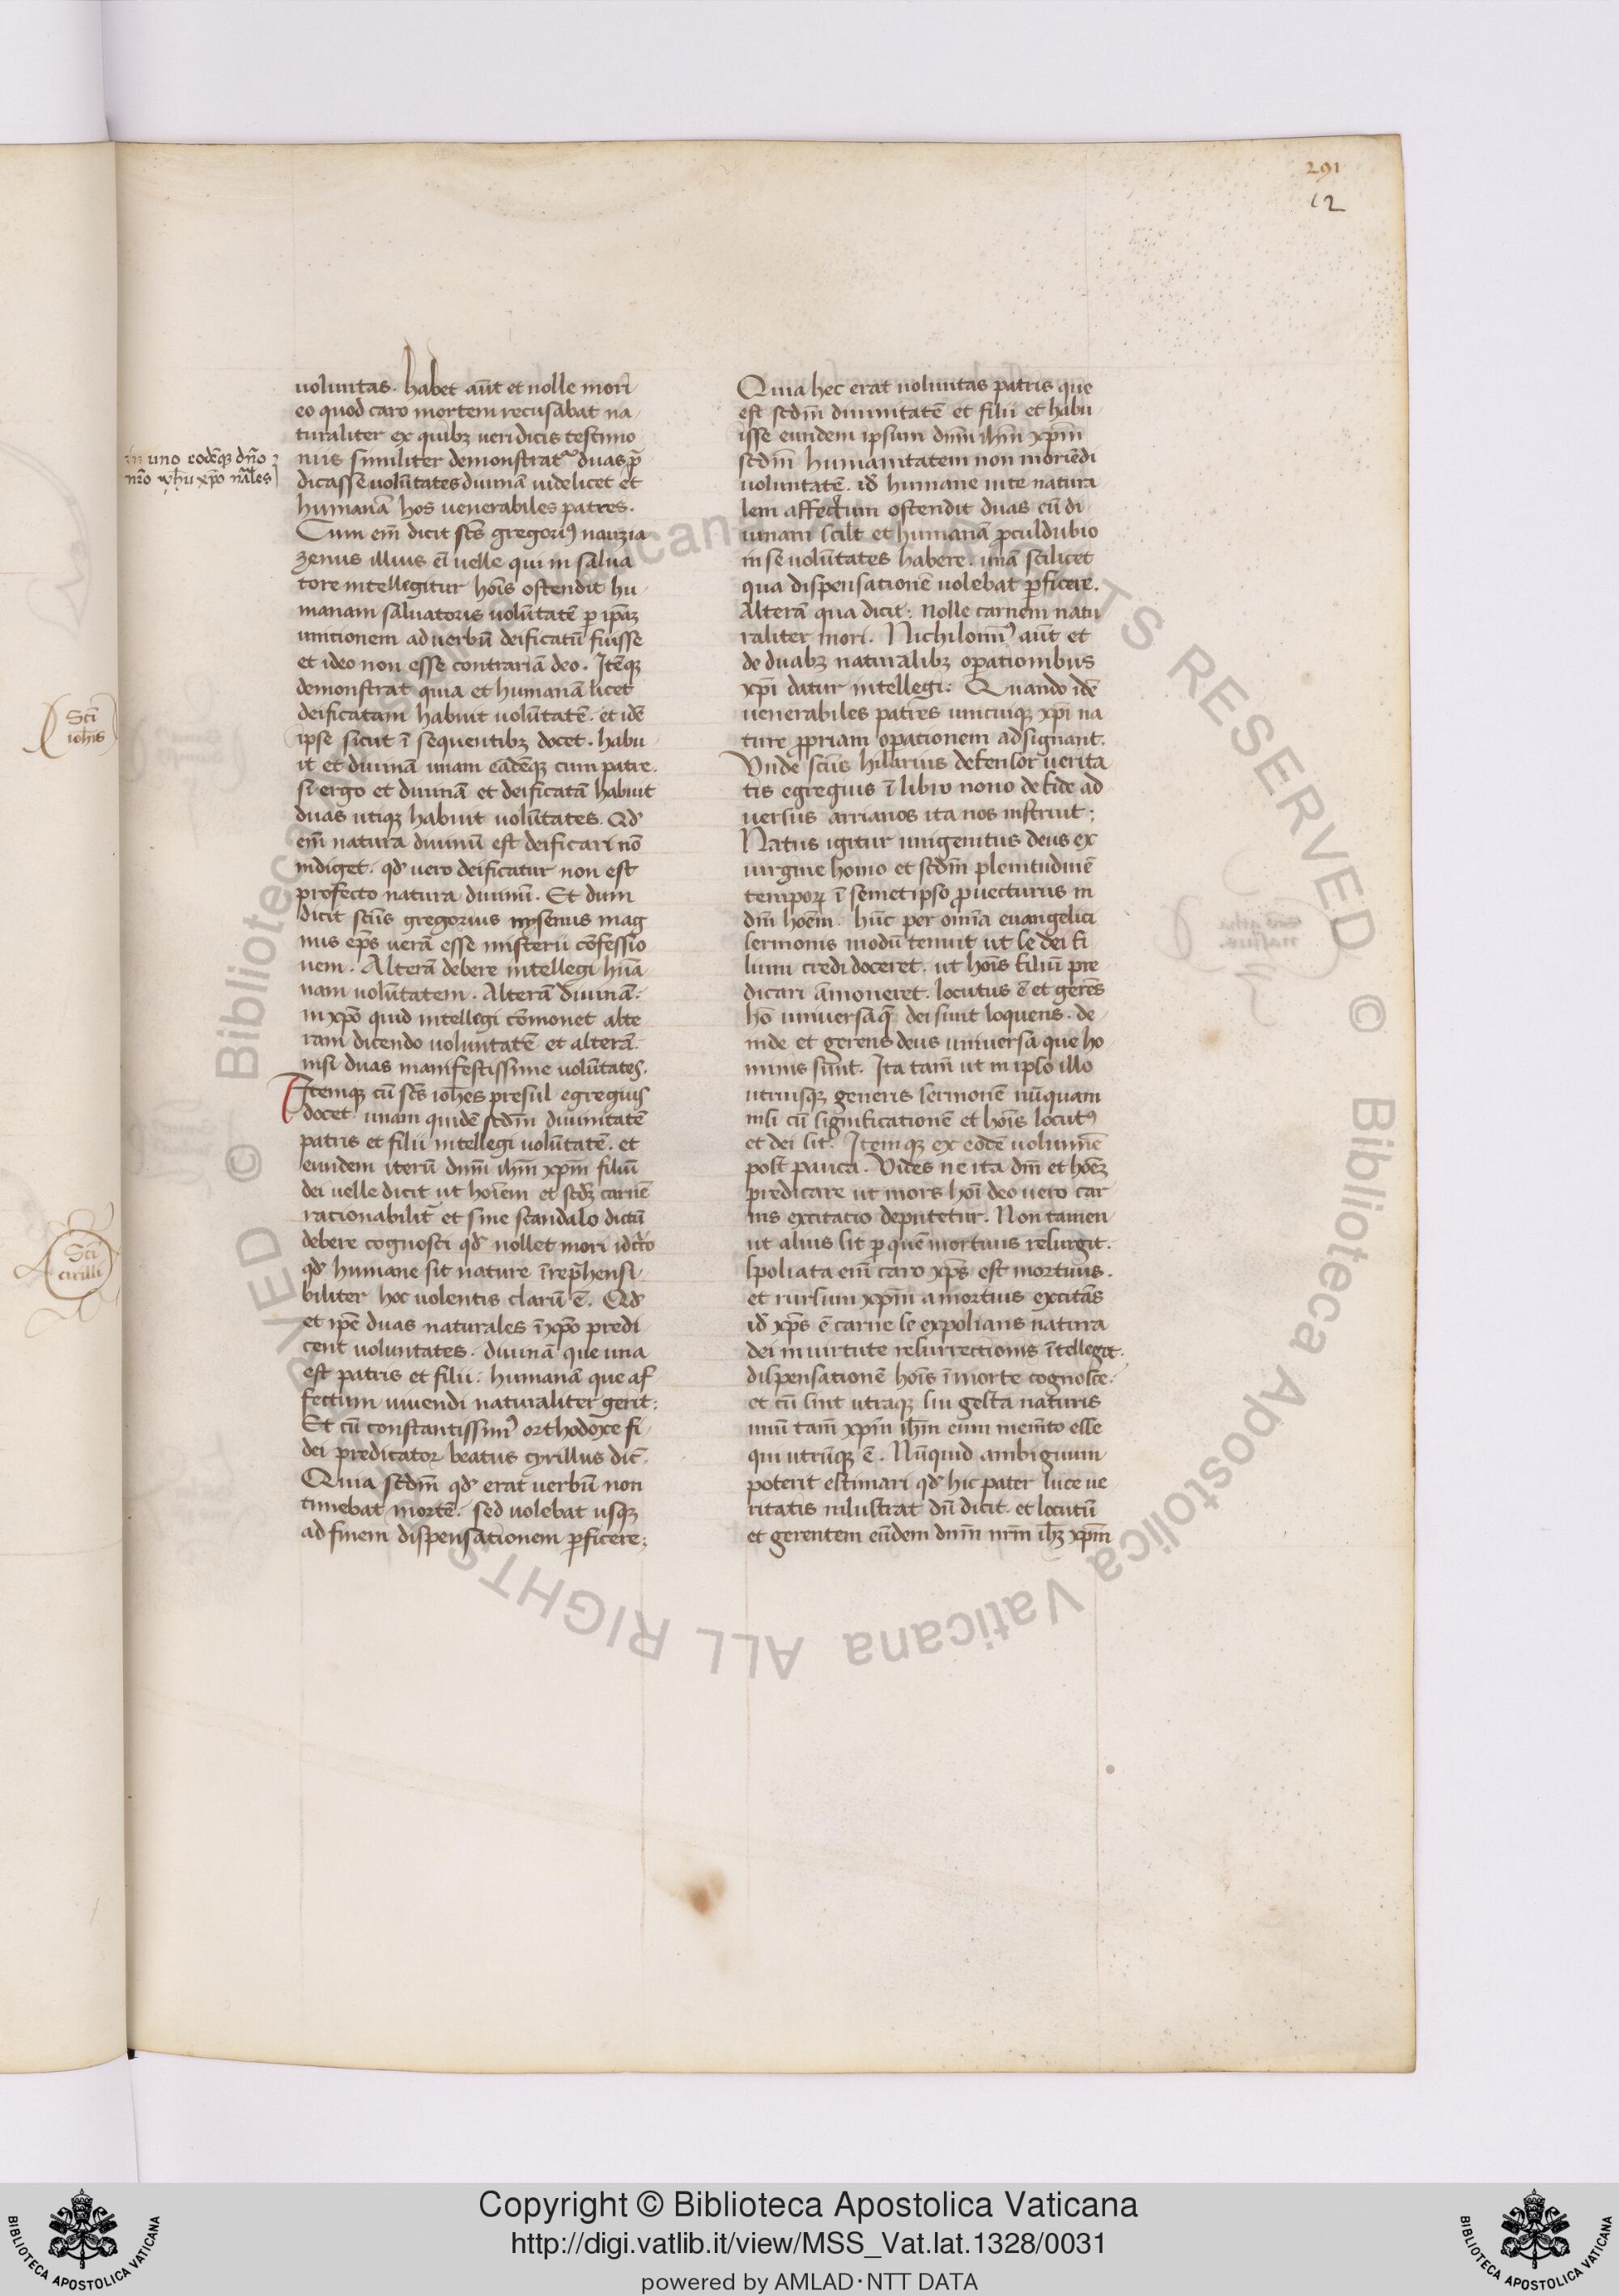 291
12
in uno eodēqȝ dño
nr̄o ihū xp̄o nāles
Sc̄i
ioh̄is
Sc̄i
cirilli
uoluntas. habet aūt et nolle mori
eo quod caro mortem recusabat na
turaliter ex quibȝ ueridicis testimo
niis similiter demonstrat᷑ duas p̄
dicasse uolūtates diuinā uidelicet et
humanā hos uenerabiles patres.
Cum em̄ dicit sc̄s gregoriꝰ nauzia
zenus illius ei uelle qui in salua
tore intellegitur hoīs ostendit hu
manam saluatoris uolūtatē ꝑ ip̄aȝ
unitionem ad uerbū deificatū fuisse
et ideo non esse contrariā deo. Itēqȝ
demonstrat quia et humanā licet
deificatam habuit uolūtatē. et idē
ipse sicut ī sequentibȝ docet. habu
it et diuinā unam eādēqȝ cum patre.
si ergo et diuinā et deificatā habuit
duas utiqȝ habuit uolūtates. Qd̾
em̄ natura diuinū est deificari nō
indiget. qd̾ uero deificatur non est
profecto natura diuinū. Et dum
dicit sc̄us gregorius nysenus mag
nus ep̄s uerā esse misterii cōfessio
nem. Alterā debere intellegi hūa
nam uolūtatem. Alterā diuinā:
in xp̄o quid intellegi cōmonet alte
ram dicendo uoluntatē et alterā:
nisi duas manifestissime uolūtates.
Itemqȝ cū sc̄s ioh̄es presul egregius
docet. unam quidē scd̄m diuinitatē
patris et filii intellegi uolūtatē. et
eundem iterū dnm̄ ihm̄ xpm̄ filiū
dei uelle dicit ut hoīem et scd̄ȝ carnē
racionabilit̄ et sine scandalo dictū
debere cognosci qd̾ nollet mori idcīrco
qd̾ humane sit nature īrep̄hensi
biliter hoc uolentis clarū ē. Qd̾
et ip̄e duas naturales ī xp̄o predi
cent uoluntates. diuinā que una
est patris et filii: humanā que af
fectum uiuendi naturaliter gerit:
Et cū constantissimꝰ orthodoxe fi
dei predicator beatus cyrillus dic̄.
Quia scd̄m qd̾ erat uerbū non
timebat mortē. sed uolebat usqȝ
ad finem dispensationem ꝑficere;
Quia hec erat uoluntas patris que
est scd̄m diuinitatē et filii et habu
isse eundem ipsum dnm̄ ihm̄ xpm̄
scd̄m humanitatem non moriēdi
uoluntatē. id̾ humane uite natura
lem affectum ostendit duas cū di
uinam scilt et humanā ꝓculdubio
in se uolūtates habere. unā scilicet
qua dispensationē uolebat ꝑficere.
Alterā qua dicit: nolle carnem natu
raliter mori. Nichilominꝰ aūt et
de duabȝ naturalibȝ oꝑationibus
xp̄i datur intellegi: Quando idē
uenerabiles patres unicuiqȝ xp̄i na
ture ꝓpriam oꝑationem adsignant.
Vnde sc̄us hilarius defensor uerita
tis egregius ī libro nono de fide ad
uersus arrianos ita nos instruit;
Natus igitur unigenitus deus ex
uirgine homo et scd̄m plenitudinē
temporꝝ ī semetipso ꝓuecturus in
dm̄ hoēm. hūc per omīa euangelici
sermonis modū tenuit ut se dei fi
lium credi doceret. ut hoīs filiū pre
dicari āmoneret. locutus ē et gerēs
hō uniuersa q̄ dei sunt loquens. de
inde et gerens deus uniuersa que ho
minis sunt. Ita tam̄ ut in ipso illo
utriusqȝ generis sermonē nūquam
nisi cū significatione et hoīs locutꝰ
et dei sit. Itemqȝ ex eodē uolumīe
post pauca. Vides ne ita dm̄ et hoēȝ
predicare ut mors hoī deo uero car
nis excitatio deputetur. Non tamen
ut alius sit ꝑ quē mortuus resurgit.
spoliata em̄ caro xp̄s est mortuus.
et rursum xpm̄ a mortuis excitās
id̾ xp̄s ē carne se expolians natura
dei in uirtute resurrectionis ītellege.
dispensationē hoīs ī morte cognosce.
et cū sint utraqȝ suis gesta naturis
unū tam̄ xpm̄ ihm̄ eum memēto esse
qui utrūqȝ ē. Nūquid ambiguum
poterit estimari qd̾ hic pater luce ue
ritatis inlustrat dū dicit. et locutū
et gerentem eūdem dnm̄ nr̄m ih̄ȝ xpm̄
Copyright © Biblioteca Apostolica Vaticana
http://digi.vatlib.it/view/MSS_Vat.lat.1328/0031
powered by AMLAD·NTT DATA
BIBLIOTECA APOSTOLICA VATICANA
BIBLIOTECA APOSTOLICA VATICANA
© Biblioteca Apostolica Vaticana ALL RIGHTS RESERVED